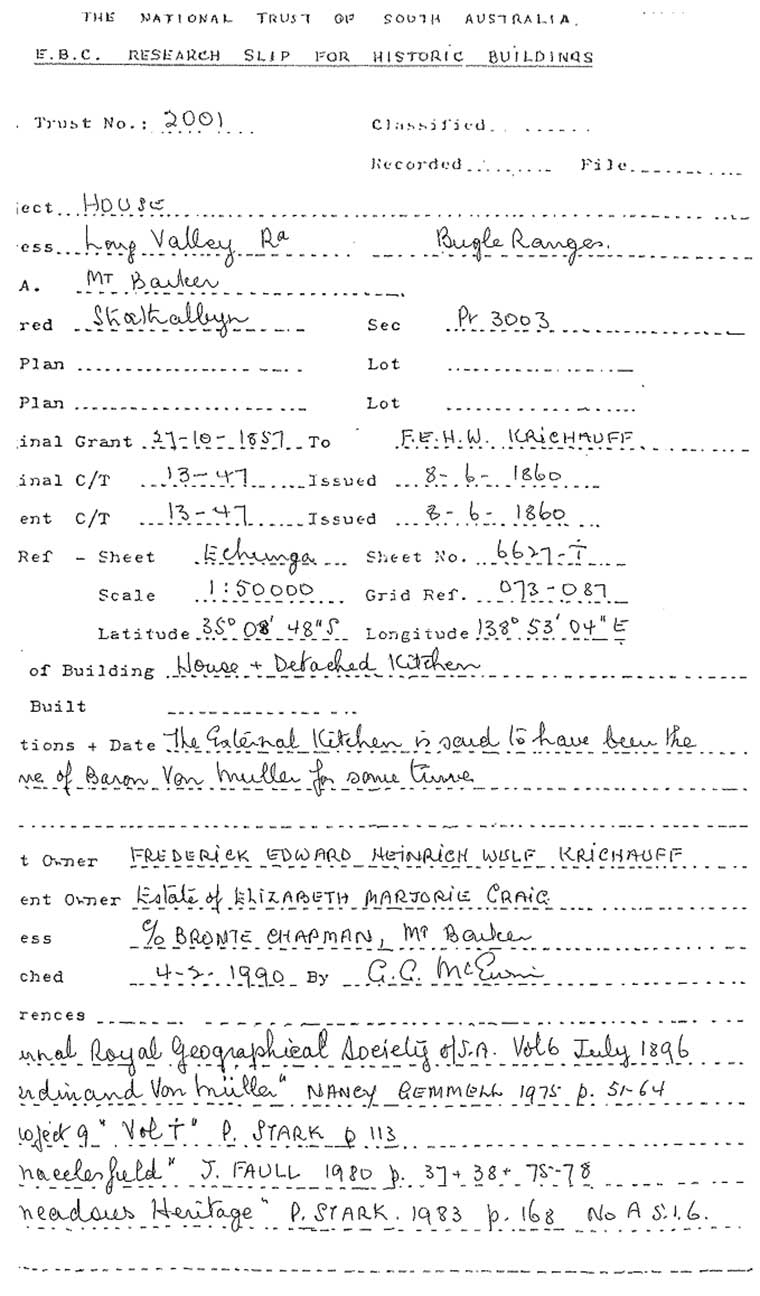 THE NATIONAL TRUST OF SOUTH AUSTRALIA.
E.B.C. RESEARCH SLIP FOR HISTORIC BUILDINGS
Trust No.: 2001 Classified
Recorded File
ject HOUSE
ess Long Valley Rd Bugle Ranges.
A. MT Barker
red Strathalbyn Sec Pr 3003
Plan Lot
Plan Lot
inal Grant 27-10-1857 To F.E.H.W. KRICHAUFF
inal C/T 13-47 Issued 8-6-1860
ent C/T 13-47 Issued 8-6-1860
Ref - Sheet Echunga Sheet No. 6627-I
Scale 1:50000 Grid Ref. 073-087
Latitude 35° 08' 48"S Longitude 138° 53' 04" E
of Building House + Detached Kitchen
Built
tions + Date The External Kitchen is said to have been the
me of Baron Von Muller for some time
t Owner FREDERICK EDWARD HEINRICH WULF KRICHAUFF
ent Owner Estate of ELIZABETH MARJORIE CRAIG
ess c/o BRONTE CHAPMAN, Mt Barker
ched 4-2-1990 By
rences
urnal Royal Geographical Society of S.A. Vol 6 July 1896
erdinand Von Müller" NANCY GEMMELL 1975 p. 51-64
roject 9" Vol I" P. STARK p 113
macclesfield" J. FAULL 1980 p. 37+38+75-78
meadows Heritage" P. STARK. 1983 p. 168 No A S.1.6.